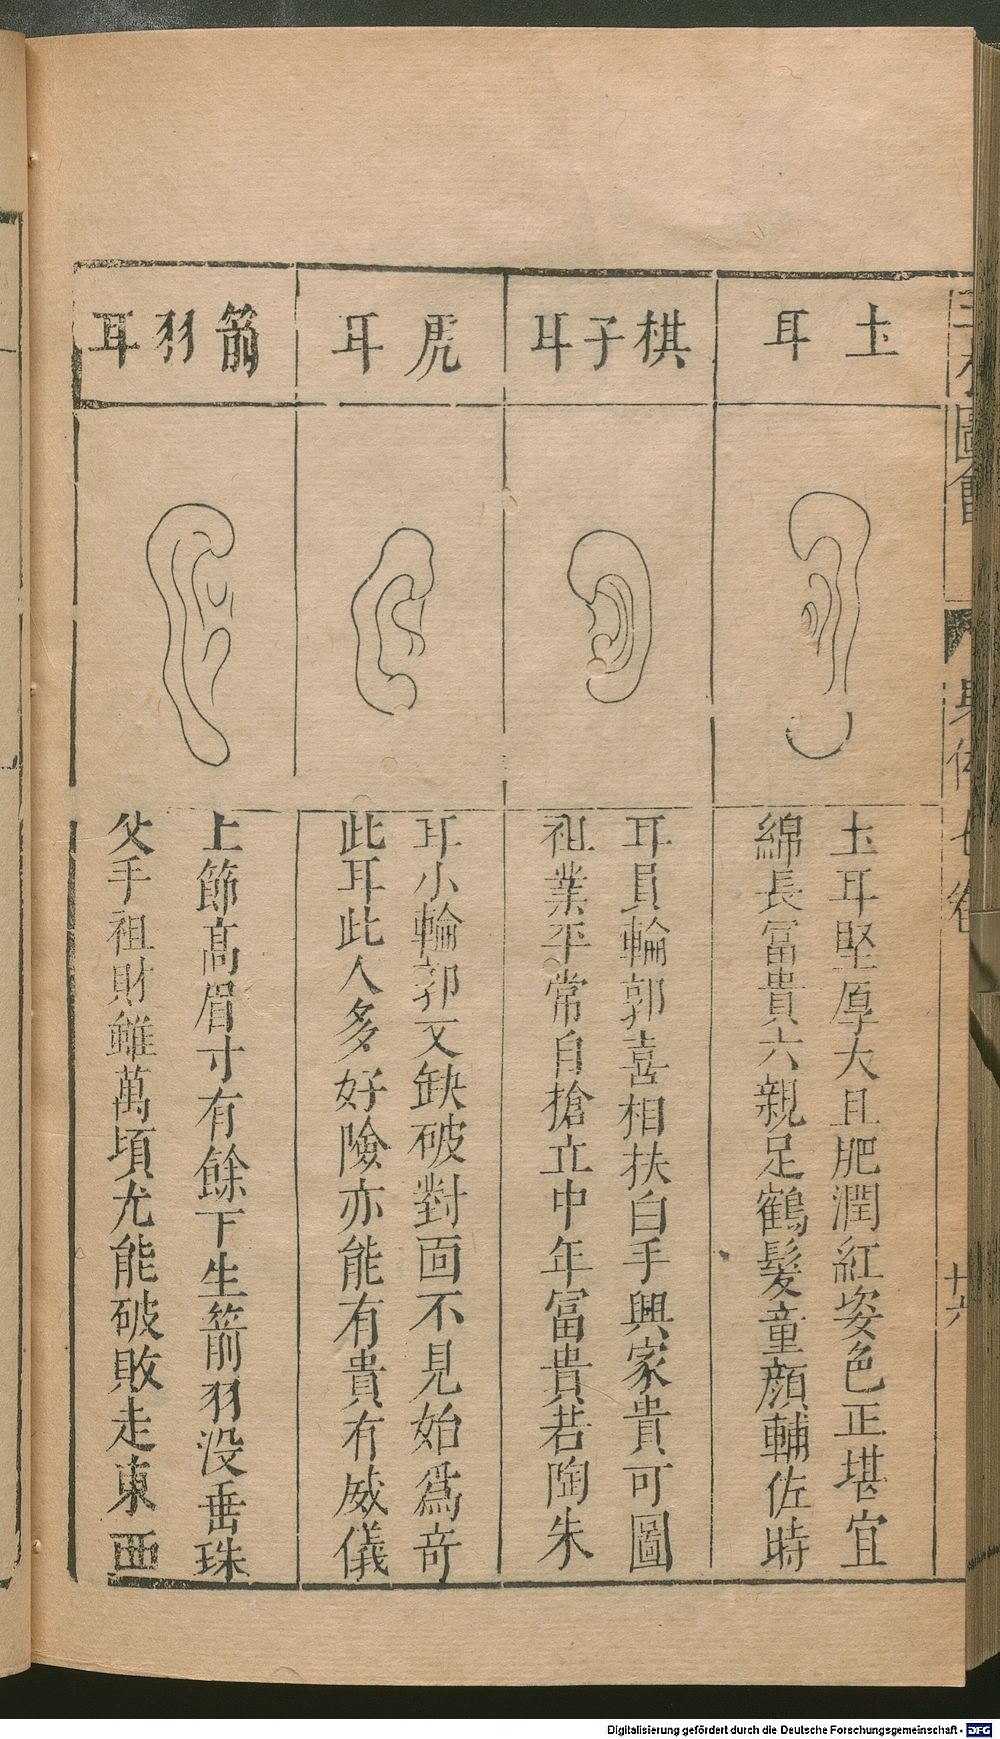 圖會
身体七卷
廿六
土耳
土耳堅厚大且肥潤紅姿色正堪宜
綿長富貴六親足鶴髮童顔輔佐時
棋子耳
耳員輪郭喜相扶白手興家貴可圖
祖業平常自搶立中年富貴若陶朱
虎耳
耳小輪郭又缺破對面不見始爲奇
此耳此人多好險亦能有貴有威儀
箭羽耳
上節高眉寸有餘下生箭羽没垂珠
父手祖財雖萬頃尤能破敗走東西
Digitalisierung gefördert durch die Deutsche Forschungsgemeinschaft - DFG